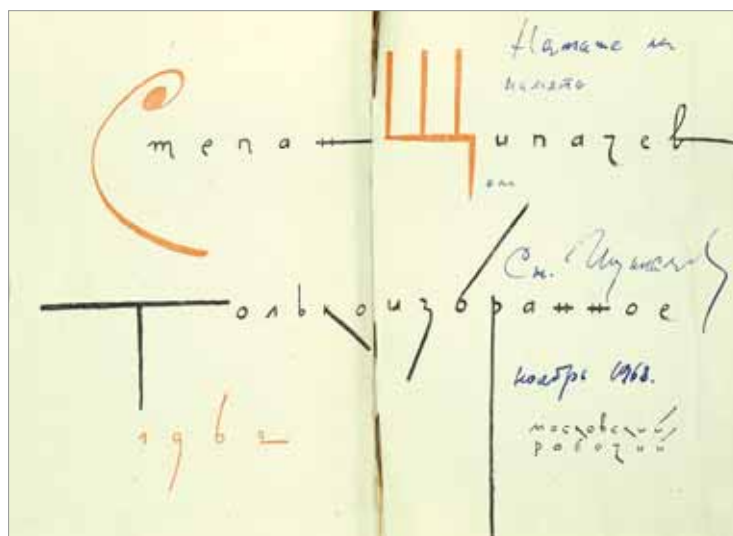 Наташе на
память
Степан Щипачев
от
Ст. Щипачев
Только избранное
ноябрь
1962
московский
рабочий